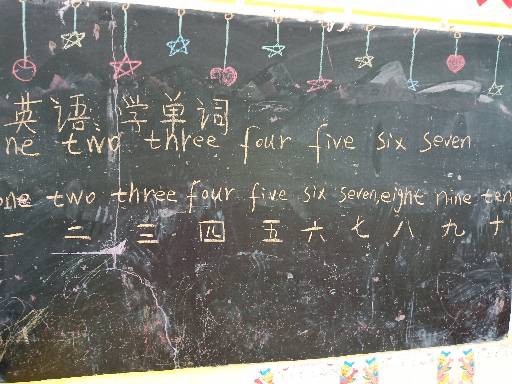 英语:学单词
ne two three four five six seven
one two three four five six seven,eight nine ten
一 二 三 四 五 六 七 八 九 十